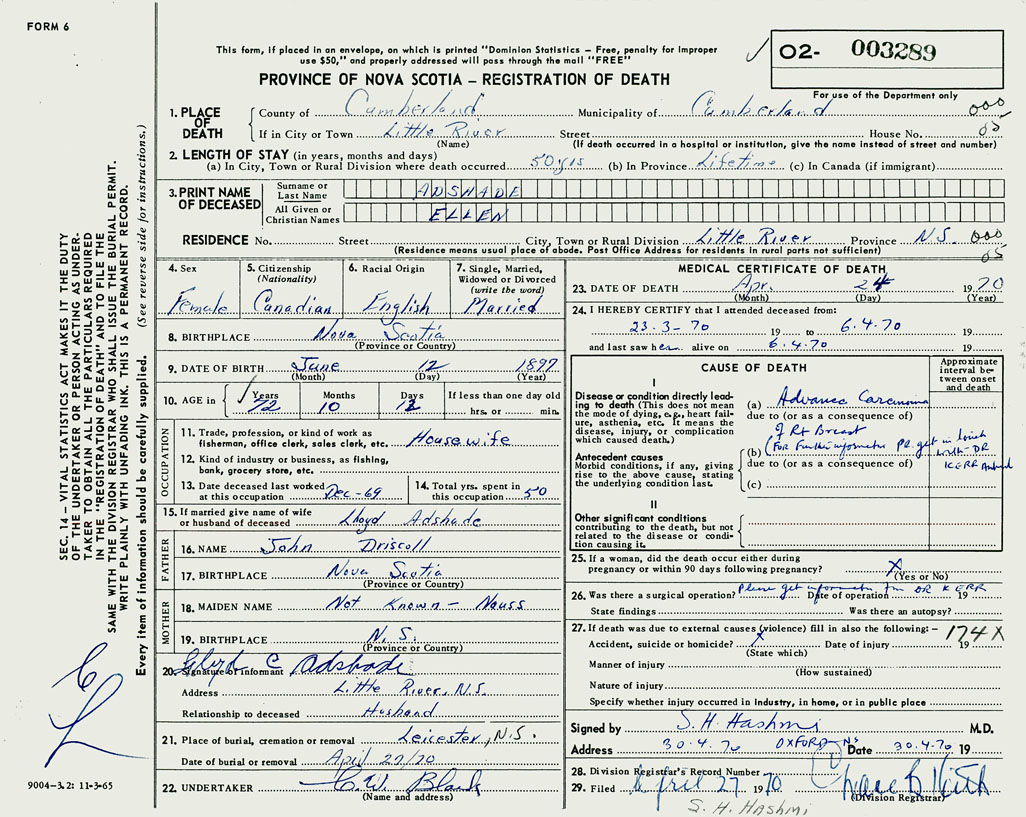 FORM 6
This form, if placed in an envelope, on which is printed "Dominion Statistics – Free, penalty for improper
use $50," and properly addressed will pass through the mail "FREE"
O2- 003289
For use of the Department only
PROVINCE OF NOVA SCOTIA – REGISTRATION OF DEATH
1. PLACE OF DEATH
County of Cumberland Municipality of Cumberland 000
If in City or Town Little River Street House No. 05
(Name) (If death occurred in a hospital or institution, give the name instead of street and number)
2. LENGTH OF STAY (in years, months and days)
(a) In City, Town or Rural Division where death occurred 50 yrs (b) In Province Lifetime (c) In Canada (if immigrant)
3. PRINT NAME OF DECEASED
Surname or Last Name ADSHADE
All Given or Christian Names ELLEN
RESIDENCE No. Street City, Town or Rural Division Little River Province N.S. 000
(Residence means usual place of abode. Post Office Address for residents in rural parts not sufficient) 05
4. Sex Female
5. Citizenship (Nationality) Canadian
6. Racial Origin English
7. Single, Married, Widowed or Divorced (write the word) Married
8. BIRTHPLACE Nova Scotia
(Province or Country)
9. DATE OF BIRTH June 12 1897
(Month) (Day) (Year)
10. AGE in Years 72 Months 10 Days 12 If less than one day old hrs. or min.
OCCUPATION
11. Trade, profession, or kind of work as
fisherman, office clerk, sales clerk, etc. Housewife
12. Kind of industry or business, as fishing,
bank, grocery store, etc.
13. Date deceased last worked at this occupation Dec-69
14. Total yrs. spent in this occupation 50
15. If married give name of wife
or husband of deceased Lloyd Adshade
FATHER
16. NAME John Driscoll
17. BIRTHPLACE Nova Scotia
(Province or Country)
MOTHER
18. MAIDEN NAME Not Known – Nauss
19. BIRTHPLACE N.S.
(Province or Country)
20. Signature of informant C Adshade
Address Little River, N.S.
Relationship to deceased Husband
21. Place of burial, cremation or removal Leicester, N.S.
Date of burial or removal April 27/70
22. UNDERTAKER C.W.
(Name and address)
MEDICAL CERTIFICATE OF DEATH
23. DATE OF DEATH Apr. 24 1970
(Month) (Day) (Year)
24. I HEREBY CERTIFY that I attended deceased from:
23-3-70 19 to 6.4.70 19
and last saw her alive on 6.4.70 19
CAUSE OF DEATH
Approximate interval between onset and death
I
Disease or condition directly leading to death (This does not mean the mode of dying, e.g., heart failure, asthenia, etc. It means the disease, injury, or complication which caused death.)
(a) Advance Carcenoma
due to (or as a consequence of)
of Rt Breast
Antecedent causes
Morbid conditions, if any, giving rise to the above cause, stating the underlying condition last.
(b) (For Further get in touch with DR KERR
due to (or as a consequence of)
(c)
II
Other significant conditions
contributing to the death, but not related to the disease or condition causing it.
25. If a woman, did the death occur either during
pregnancy or within 90 days following pregnancy? X
(Yes or No)
26. Was there a surgical operation? Please get information fm DR KERR Date of operation 19
State findings Was there an autopsy?
27. If death was due to external causes (violence) fill in also the following: – 174X
Accident, suicide or homicide? X Date of injury 19
(State which)
Manner of injury
(How sustained)
Nature of injury
Specify whether injury occurred in Industry, in home, or in public place
Signed by S. H. Hashmi M.D.
Address 30.4.70 OXFORD NS Date 30.4.70 19
28. Division Registrar's Record Number
29. Filed April 27 1970
(Division Registrar)
S. H. HASHMI
SEC. 14 – VITAL STATISTICS ACT MAKES IT THE DUTY
OF THE UNDERTAKER OR PERSON ACTING AS UNDER-
TAKER TO OBTAIN ALL THE PARTICULARS REQUIRED
IN THE "REGISTRATION OF DEATH" AND TO FILE THE
SAME WITH THE DIVISION REGISTRAR WHO SHALL ISSUE THE BURIAL PERMIT.
WRITE PLAINLY WITH UNFADING INK. THIS IS A PERMANENT RECORD.
Every item of information should be carefully supplied. (See reverse side for instructions.)
9004–3.2: 11-3-65